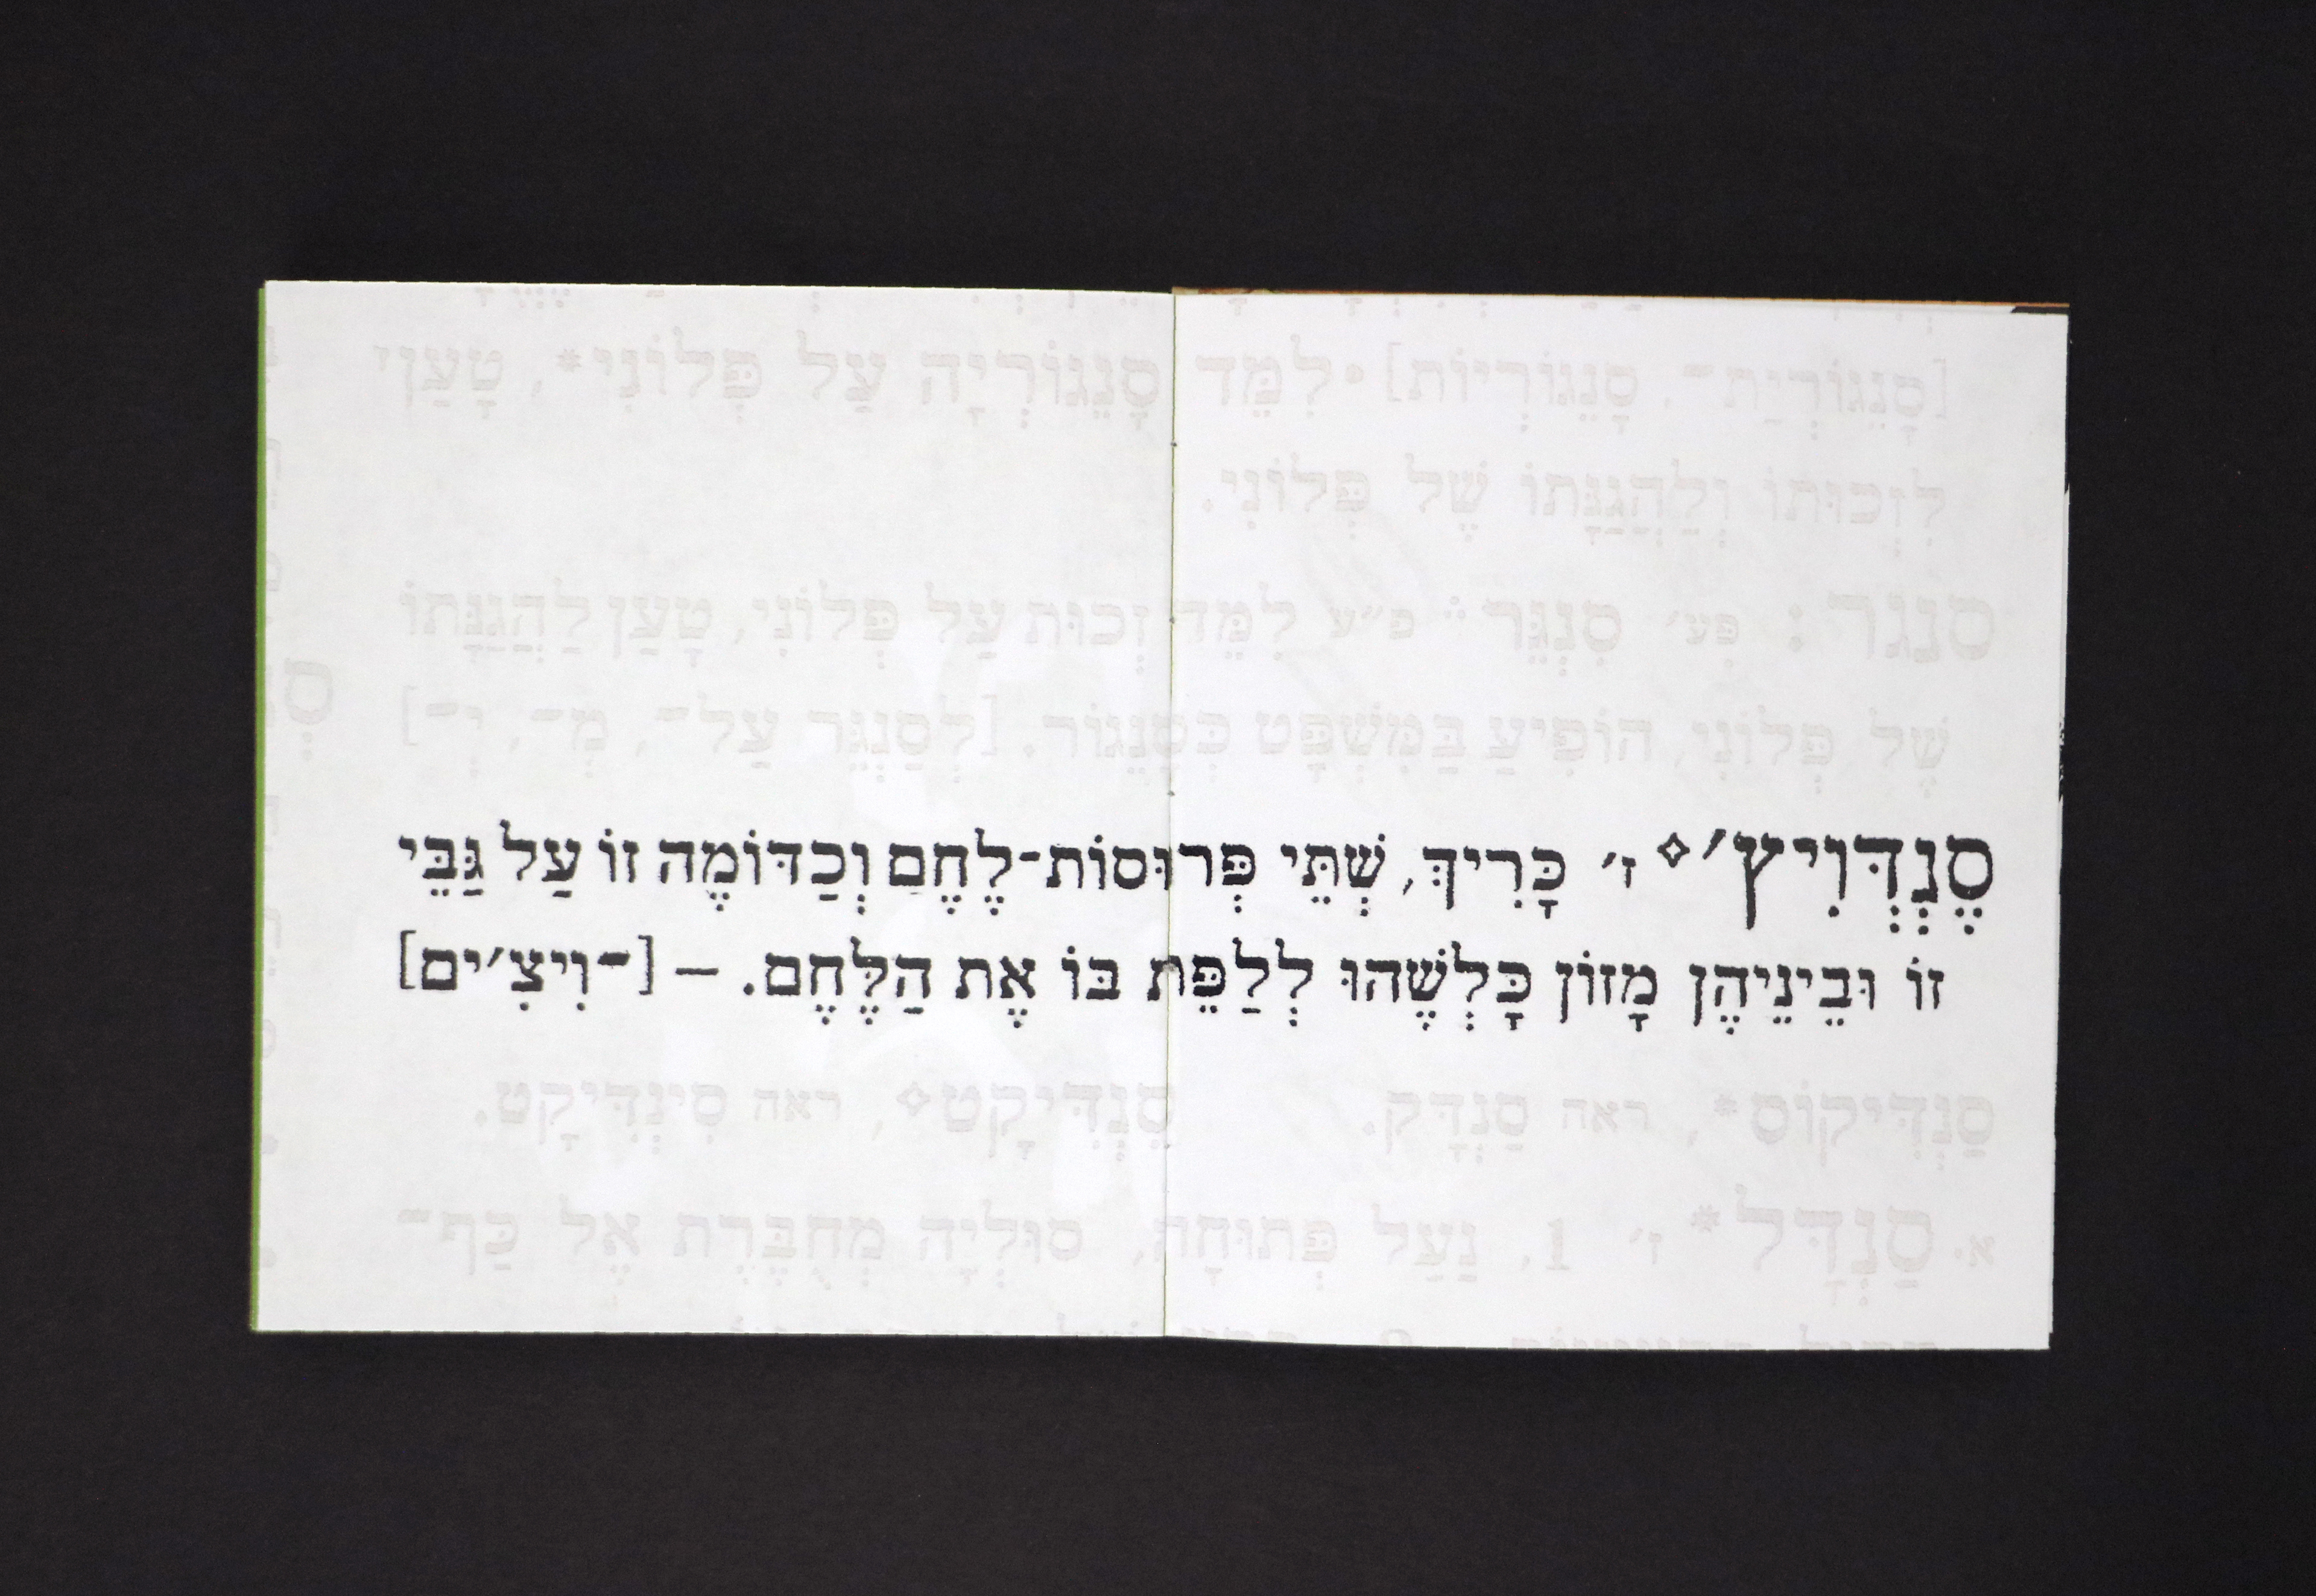 [סָנֵגוֹרְיַת־, סָנֵגוֹרְיוֹת] • לִמֵּד סָנֵגוֹרְיָה עַל פְּלוֹנִי*, טָעַן
לִזְכוּתוֹ וְלַהֲגַנָּתוֹ שֶׁל פְּלוֹנִי.
סנגר : פע׳ סִנְגֵּר פ״ע לִמֵּד זְכוּת עַל פְּלוֹנִי, טָעַן לַהֲגַנָּתוֹ
שֶׁל פְּלוֹנִי, הוֹפִיעַ בַּמִּשְׁפָּט כְּסָנֵגוֹר. [לְסַנְגֵּר עַל־, מְ־, יְ־]
סֶנְדְּוִיץ׳◇ ז׳ כָּרִיךְ, שְׁתֵּי פְּרוּסוֹת-לֶחֶם וְכַדּוֹמֶה זוֹ עַל גַּבֵּי
זוֹ וּבֵינֵיהֶן מָזוֹן כָּלְשֶׁהוּ לְלַפֵּת בּוֹ אֶת הַלֶּחֶם. – [־וִיצִ׳ים]
סַנְדִּיקוֹס*, ראה סַנְדָּק. סֶנְדִּיקָט◇, ראה סִינְדִּיקָט.
א. סַנְדָּל* ז׳ 1. נַעַל פְּתוּחָה, סוּלְיָה מְחֻבֶּרֶת אֶל כַּף־